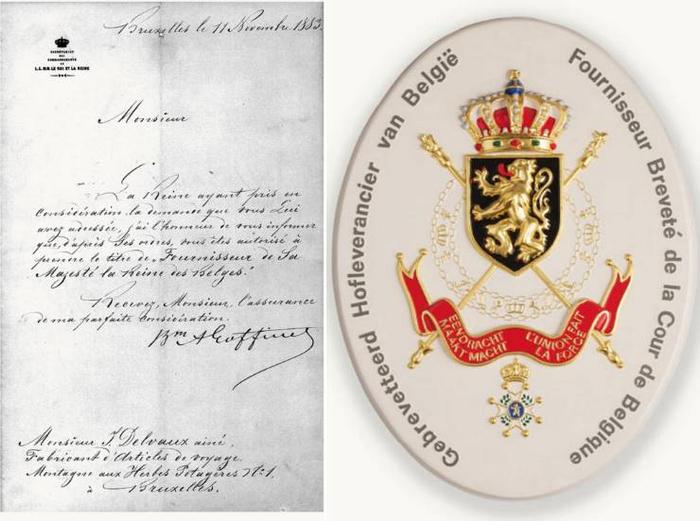 Bruxelles le 11 Novembre 1883.
SECRÉTARIAT
DES
COMMANDEMENTS
DE
L.L.M.M. LE ROI ET LA REINE
Monsieur
La Reine ayant pris en
considération la demande que vous Lui
avez adressée, j'ai l'honneur de vous informer
que, d'après Ses ordres, vous êtes autorisé à
prendre le titre de "Fournisseur de Sa
Majesté la Reine des Belges."
Recevez, Monsieur, l'assurance
de ma parfaite considération.
Bon A Goffinet
Monsieur J. Delvaux ainé,
Fabricant d'Articles de voyage
Montagne aux Herbes Potagères No 1.
à Bruxelles.
Gebrevetteerd Hofleverancier van België
Fournisseur Breveté de la Cour de Belgique
EENDRACHT
MAAKT MACHT
L'UNION FAIT
LA FORCE